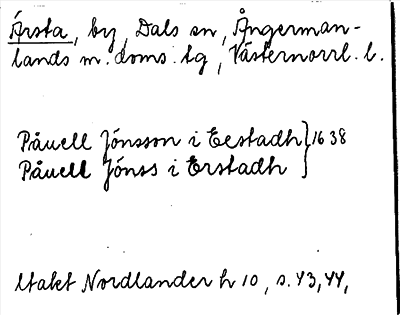 Årsta, by, Dals sn, Ångerman-
lands m. doms. tg, Västernorrl. l.
Påuell Jónsson i Eestadh } 1638
Påuell Jónss i Erstadh
Utakt Nordlander h 10, s. 43, 44,